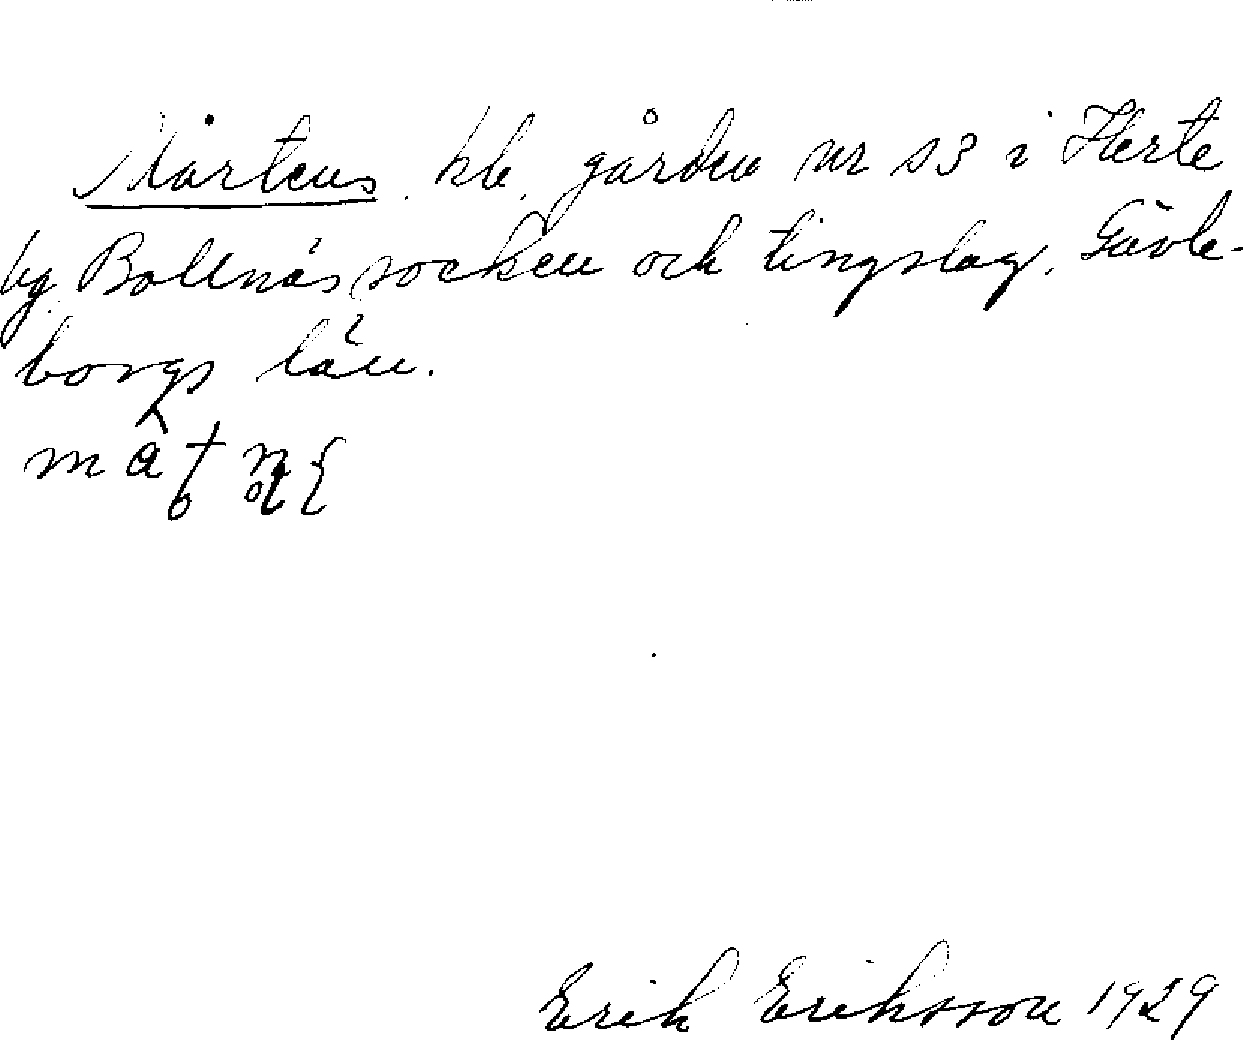 Mårtens. kb. gården nr 13 i Herte
by Bollnäs socken och tingslag. Gävle-
borgs län.
Erik Eriksson 1929